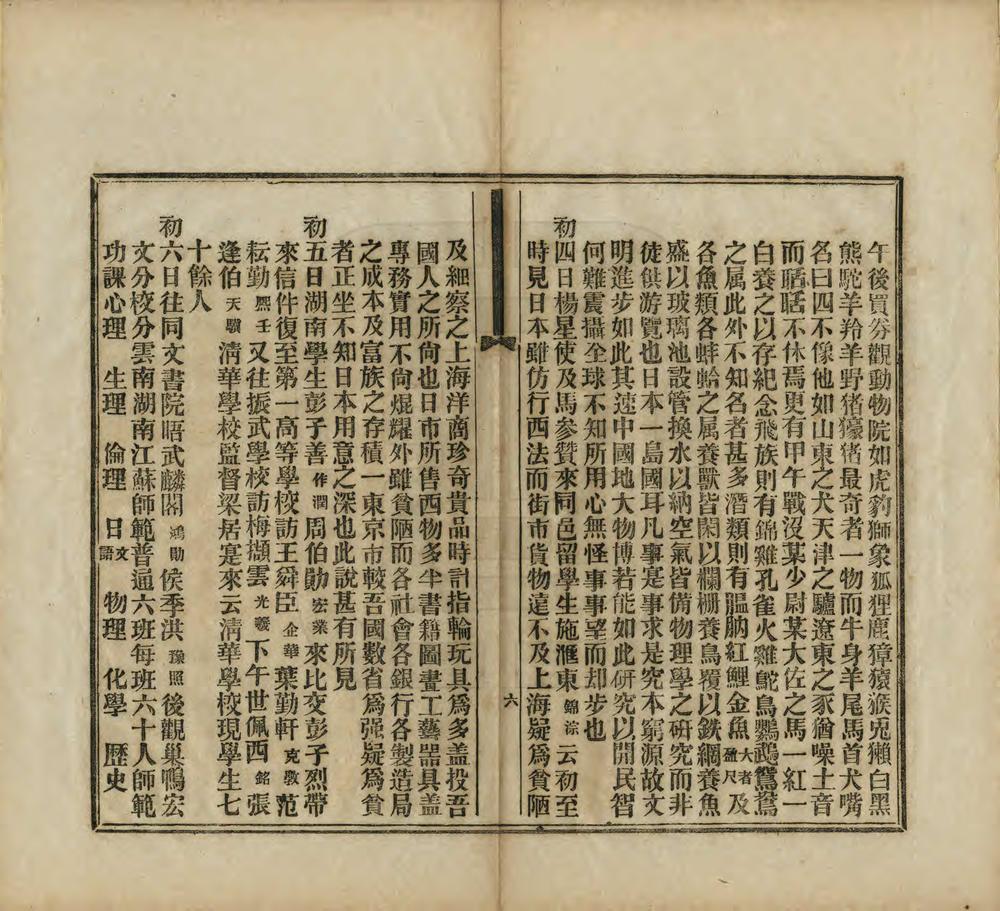 午後買券觀動物院如虎豹獅象狐狸鹿獐猿猴兎獺白黑
熊駝羊羚羊野猪獴猪最奇者一物而牛身羊尾馬首犬嘴
名曰四不像他如山東之犬天津之驢遼東之豕猶噪土音
而聒聒不休焉更有甲午戰沒某少尉某大佐之馬一紅一
白養之以存紀念飛族則有錦雞孔雀火雞鴕鳥鸚鵡鴛鴦
之属此外不知名者甚多潛類則有膃肭紅鯉金魚大者盈尺及
各魚類各蚌蛤之属養獸皆閑以欄柵養鳥覆以鉄綱養魚
盛以玻璃池設管換水以納空氣皆備物理學之研究而非
徒供游覽也日本一島國耳凡事寔事求是究本窮源故文
明進步如此其速中國地大物博若能如此研究以開民智
何難震攝全球不知所用心無怪事事望而却步也
初四日楊星使及馬參贊來同邑留學生施滙東錦淙云初至
時見日本雖仿行西法而街市貨物遠不及上海疑爲貧陋
六
及細察之上海洋商珍奇貴品時計指輪玩具爲多盖投吾
國人之所尙也日市所售西物多半書籍圖畫工藝器具盖
專務實用不尙焜耀外雖貧陋而各社會各銀行各製造局
之成本及富族之存積一東京市較吾國數省爲强疑爲貧
者正坐不知日本用意之深也此說甚有所見
初五日湖南學生彭子善作潤周伯勛宏業來比交彭子烈帶
來信件復至第一高等學校訪王舜臣企華葉勤軒克敫范
耘勤熙壬又往振武學校訪梅擷雲光羲下午世佩西銘張
逢伯天驥淸華學校監督梁居寔來云淸華學校現學生七
十餘人
初六日往同文書院晤武麟閣鴻勛侯季洪豫照後觀巢鴨宏
文分校分雲南湖南江蘇師範普通六班每班六十人師範
功課心理　生理　倫理　日文語　物理　化學　歷史